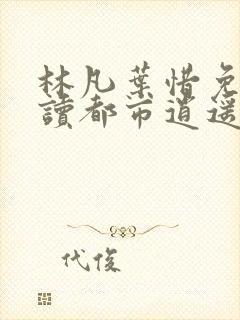 林凡葉惜免
讀都市逍遥
代俊